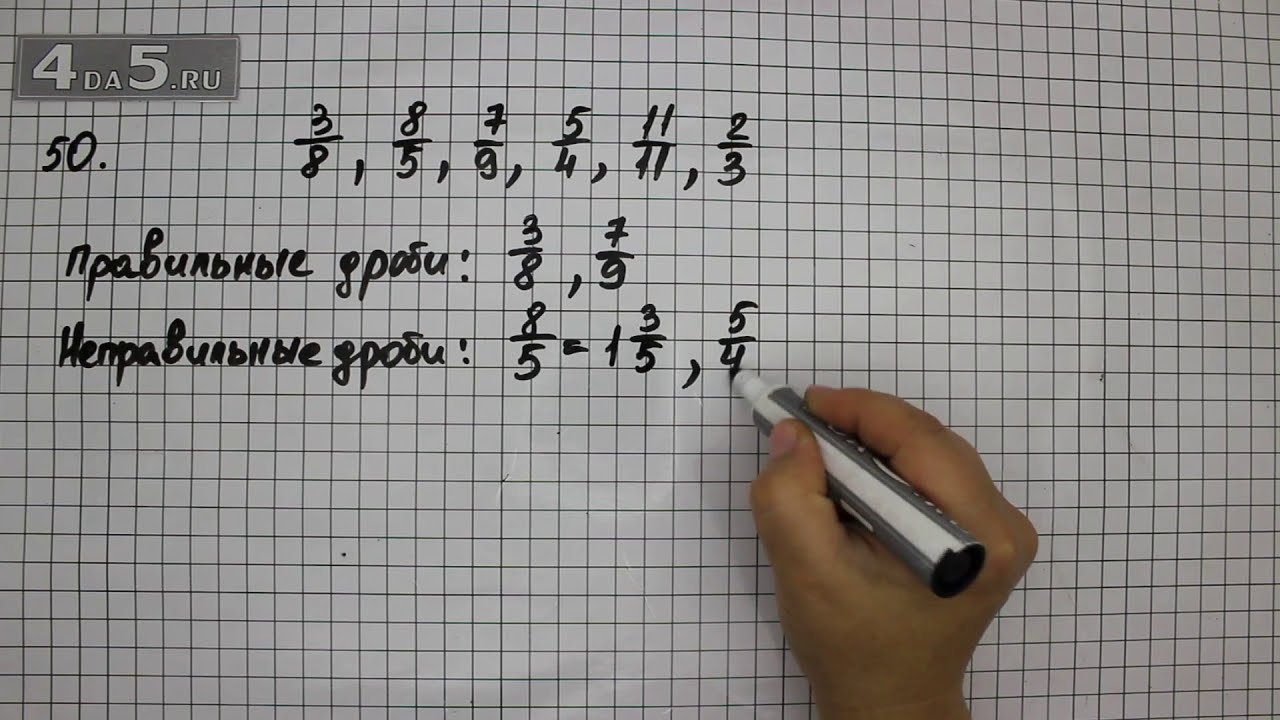 4DA5.RU
50. 3/8, 8/5, 7/9, 5/4, 11/11, 2/3
Правильные дроби: 3/8, 7/9
Неправильные дроби: 8/5 = 1 3/5, 5/4